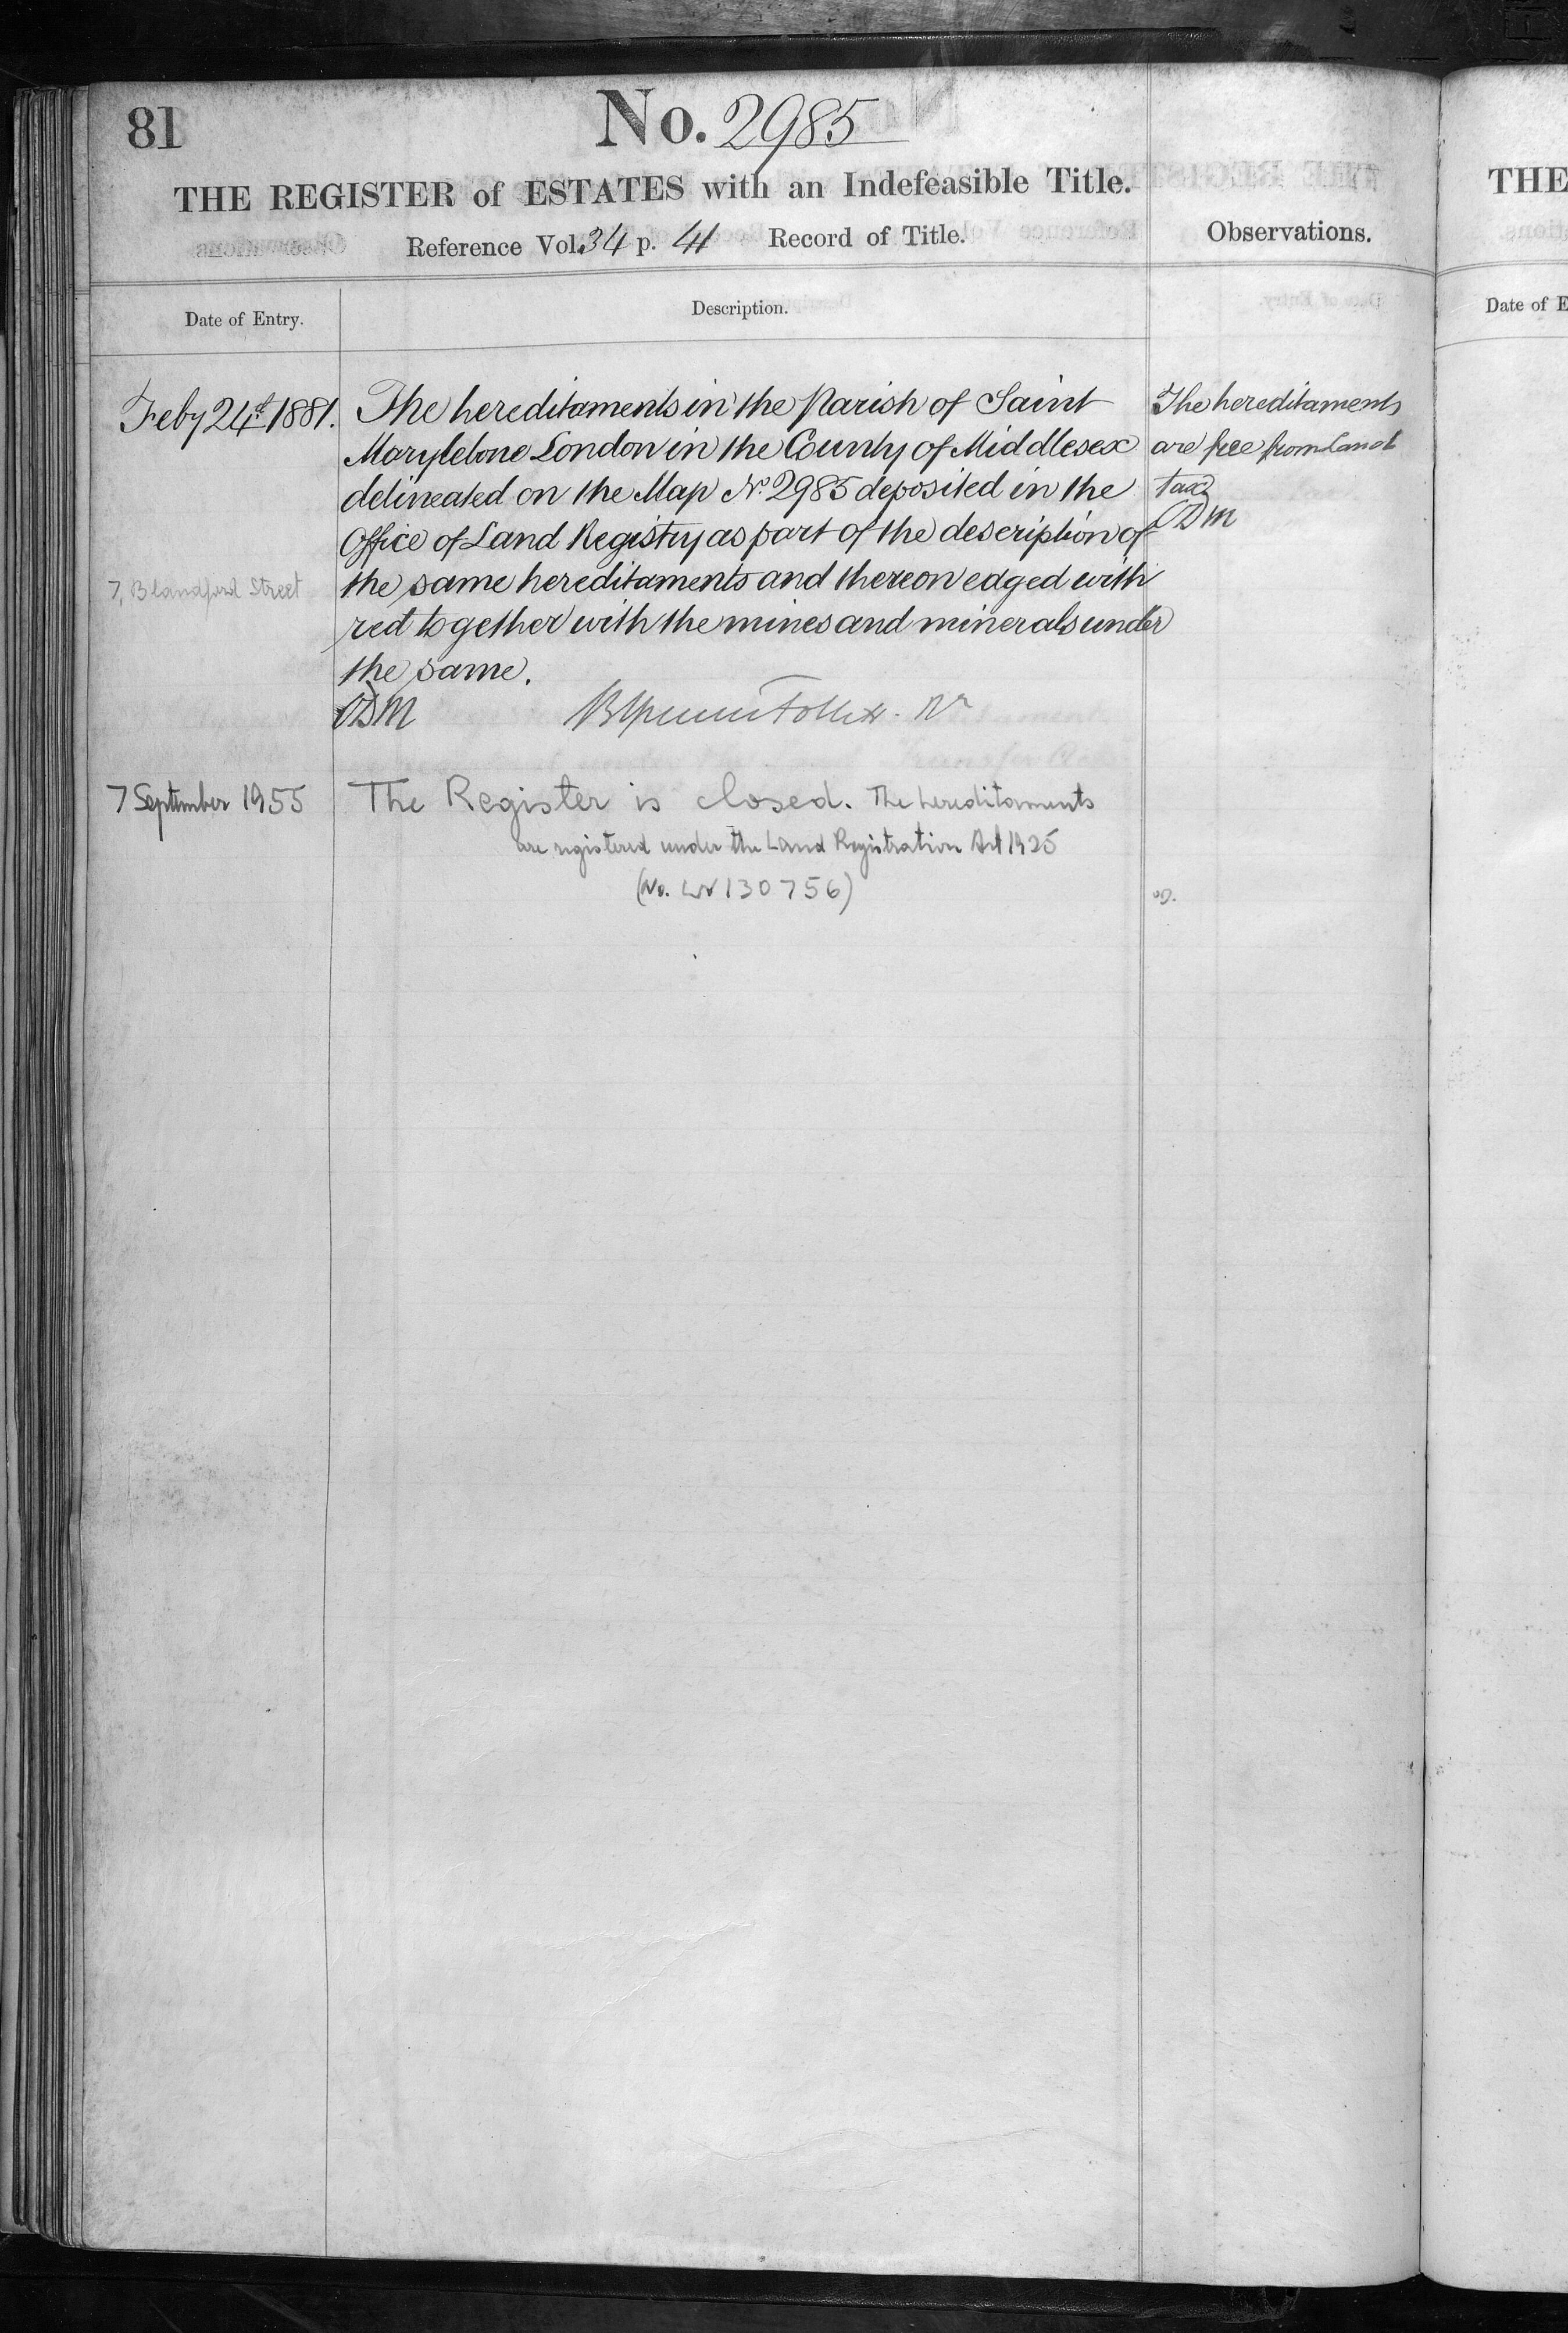 81
No. 2985
THE REGISTER of ESTATES with an Indefeasible Title.
Reference Vol. 34 p. 41 Record of Title.
Observations.
Date of Entry.
Description.
Feby 24th 1881.
The hereditaments in the Parish of Saint
Marylebone London in the County of Middlesex
delineated on the Map No. 2985 deposited in the
Office of Land Registry as part of the description of
the same hereditaments and thereon edged with
red together with the mines and minerals under
the same.
The hereditaments
are free from land
tax
7, Blandford Street
7 September 1955
The Register is closed. The hereditaments
are registered under the Land Registration Act 1925
(No. LN 130756)
THE
Date of E